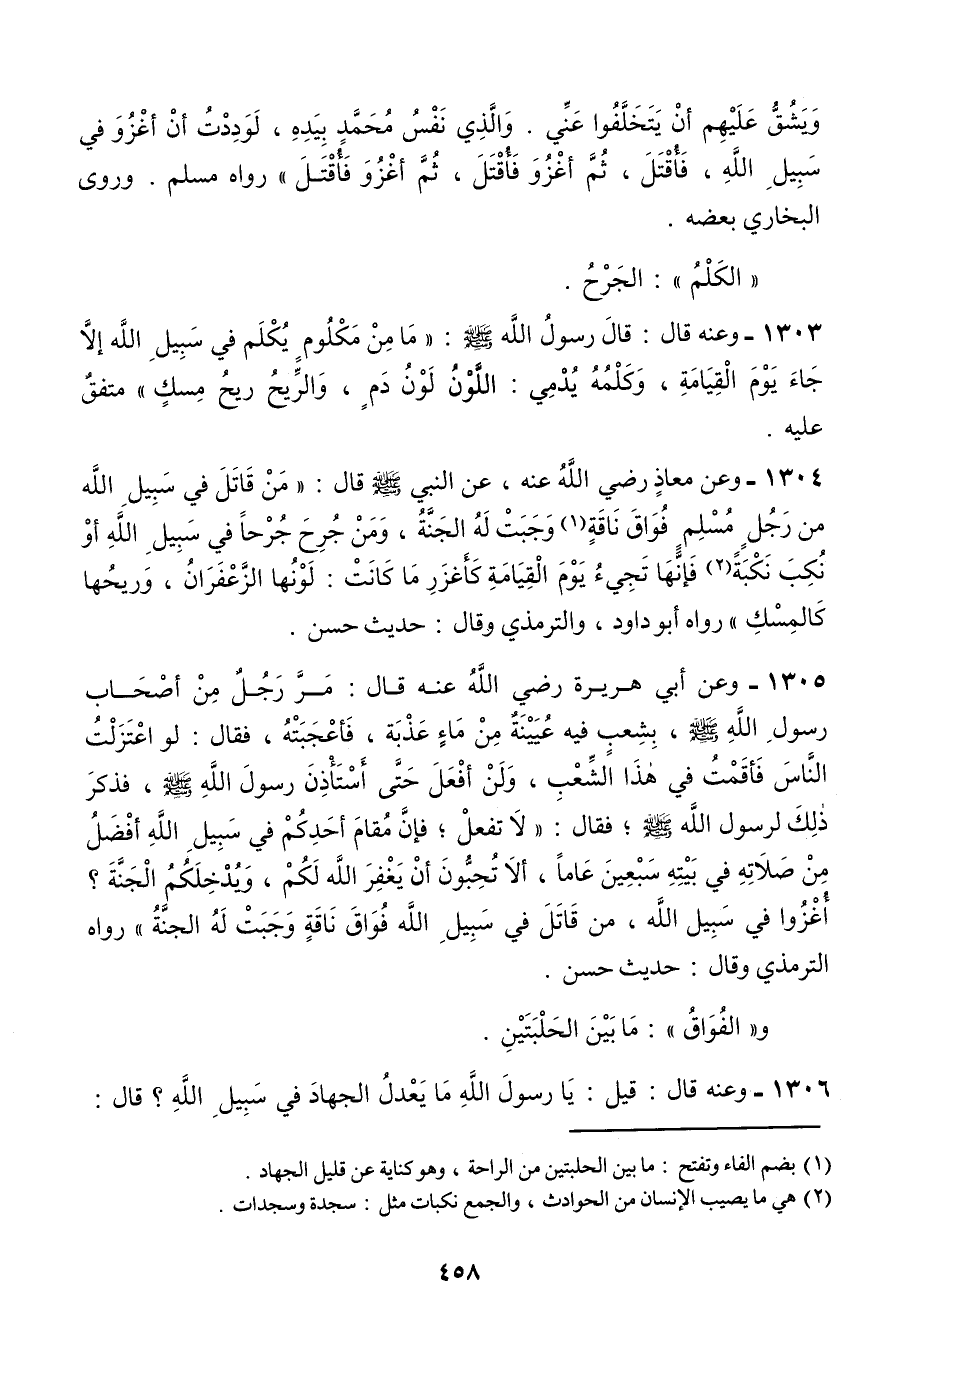 وَيَشُقُّ عَلَيْهِم أنْ يَتَخَلَّفُوا عَنِّي . وَالَّذِي نَفْسُ مُحَمَّدٍ بِيَدِهِ ، لَوَدِدْتُ أنْ أغْزُوَ في
سَبِيلِ اللَّهِ ، فَأُقْتَلَ ، ثُمَّ أغْزُوَ فَأُقْتَلَ ، ثُمَّ أغْزُوَ فَأُقْتَلَ » رواه مسلم . وروى
البخاري بعضه .
« الكَلْمُ » : الجَرْحُ .
١٣٠٣ ـ وعنه قال : قالَ رسولُ اللَّه ﷺ : « مَا مِنْ مَكْلُومٍ يُكْلَم في سَبِيلِ اللَّه إلاَّ
جَاءَ يَوْمَ الْقِيَامَةِ ، وَكَلْمُهُ يُدْمِي : اللَّوْنُ لَوْنُ دَمٍ ، وَالرِّيحُ ريحُ مِسكٍ » متفقٌ
عليه .
١٣٠٤ ـ وعن معاذٍ رضي اللَّهُ عنه ، عن النبي ﷺ قال : « مَنْ قَاتَلَ في سَبِيلِ الله
من رَجُلٍ مُسْلِمٍ فُوَاقَ نَاقَةٍ(١) وَجَبَتْ لَهُ الجَنَّةُ ، وَمَنْ جُرِحَ جُرْحاً في سَبِيلِ اللَّهِ أوْ
نُكِبَ نَكْبَةً(٢) فَإنَّهَا تَجِيءُ يَوْمَ الْقِيَامَةِ كَأَغزَرِ مَا كَانَتْ : لَوْنُها الزَّعْفَرَانُ ، وَريحُها
كَالمِسْكِ » رواه أبو داود ، والترمذي وقال : حديث حسن .
١٣٠٥ ـ وعن أبي هريرة رضي اللَّهُ عنه قال : مَرَّ رَجُلٌ مِنْ أصْحَاب
رسولِ اللَّهِ ﷺ ، بِشِعبٍ فيه عُيَيْنَةٌ مِنْ مَاءٍ عَذْبَة ، فَأعْجَبَتْهُ ، فقال : لو اعْتَزَلْتُ
النَّاسَ فَأقَمْتُ في هٰذَا الشِّعْبِ ، وَلَنْ أفْعَلَ حَتَّى أَسْتَأْذِنَ رسولَ اللَّهِ ﷺ ، فذكرَ
ذٰلِكَ لرسول اللَّه ﷺ ؛ فقال : « لَا تفعلْ ؛ فإنَّ مُقامَ أحَدِكُمْ في سَبِيلِ اللَّهِ أفْضَلُ
مِنْ صَلَاتِهِ في بَيْتِهِ سَبْعِينَ عَاماً ، ألَا تُحِبُّونَ أنْ يَغْفِرَ الله لَكُمْ ، وَيُدْخِلَكُمُ الْجَنَّةَ ؟
أُغْزُوا في سَبِيل اللَّه ، من قَاتَلَ في سَبِيلِ الله فُوَاقَ نَاقَةٍ وَجَبَتْ لَهُ الجنَّةُ » رواه
الترمذي وقال : حديث حسن .
و« الفُوَاقُ » : مَا بَيْنَ الحَلْبَتَيْنِ .
١٣٠٦ ـ وعنه قال : قيل : يَا رسولَ اللَّهِ مَا يَعْدلُ الجهادَ في سَبِيلِ اللَّهِ ؟ قال :
(١) بضم الفاء وتفتح : ما بين الحلبتين من الراحة ، وهو كناية عن قليل الجهاد .
(٢) هي ما يصيب الإنسان من الحوادث ، والجمع نكبات مثل : سجدة وسجدات .
٤٥٨